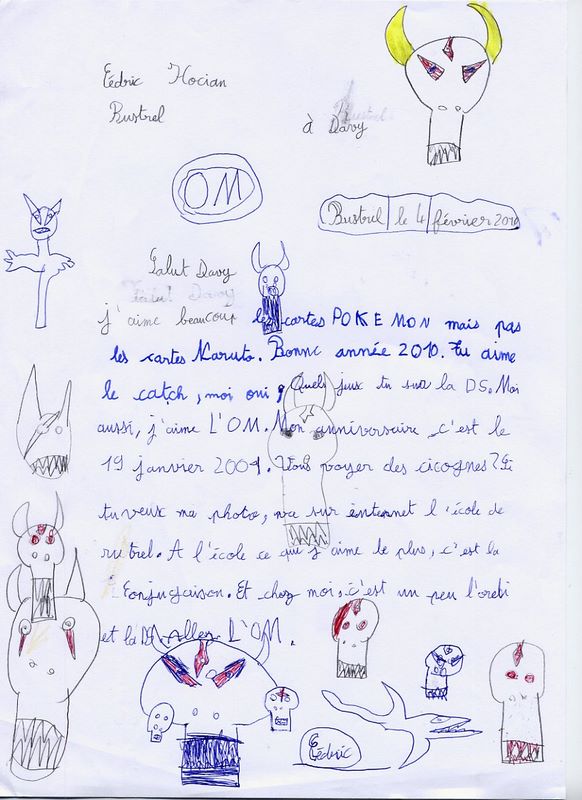 Cédric Hocian
Rustrel
à Davy
OM
Rustrel le 4 février 2010
Salut Davy
j'aime beaucoup les cartes POKEMON mais pas
les cartes Naruto. Bonne année 2010. Tu aime
le catch, moi oui, Quels jeux tu sur la DS. Moi
aussi, j'aime L'OM. Mon anniversaire c'est le
19 janvier 2001. Vous voyer des cicognes? Si
tu veux ma photo, va sur internet l'école de
rustrel. A l'école ce que j'aime le plus, c'est la
Conjugaison. Et chez moi, c'est un peu l'ordi
et la DS. Allez L'OM.
Cédric